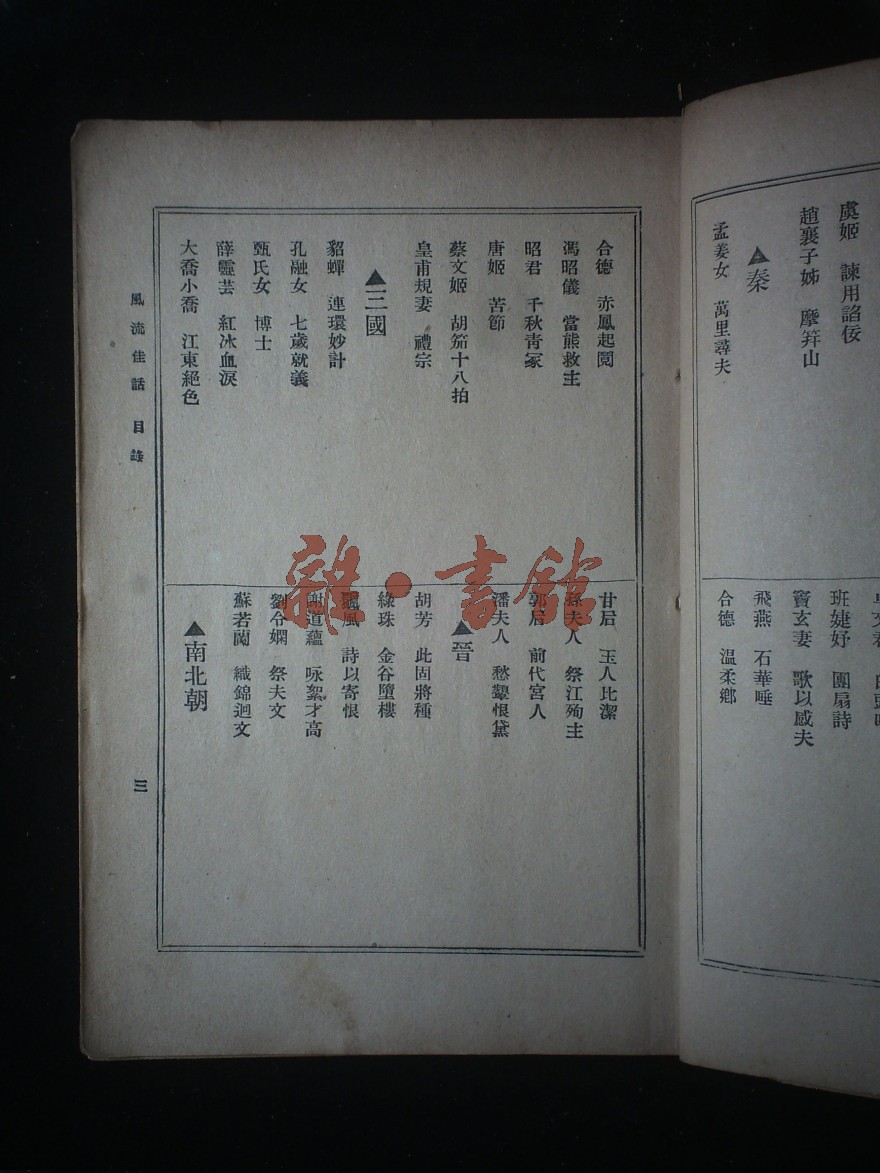 虞姬　諫用諂佞
趙襄子姊　摩笄山
▲秦
孟姜女　萬里尋夫
班婕妤　團扇詩
竇玄妻　歌以感夫
飛燕　石華唾
合德　溫柔鄉
合德　赤鳳起鬩
馮昭儀　當熊救主
昭君　千秋青冢
唐姬　苦節
蔡文姬　胡笳十八拍
皇甫規妻　禮宗
▲三國
貂蟬　連環妙計
孔融女　七歲就義
甄氏女　博士
薛靈芸　紅冰血淚
大喬小喬　江東絕色
甘后　玉人比潔
孫夫人　祭江殉主
郭后　前代宮人
潘夫人　愁顰恨黛
▲晉
胡芳　此固將種
綠珠　金谷墮樓
翾風　詩以寄恨
謝道蘊　咏絮才高
劉令嫻　祭夫文
蘇若蘭　織錦迴文
▲南北朝
風流佳話　目錄
三
雜·書館